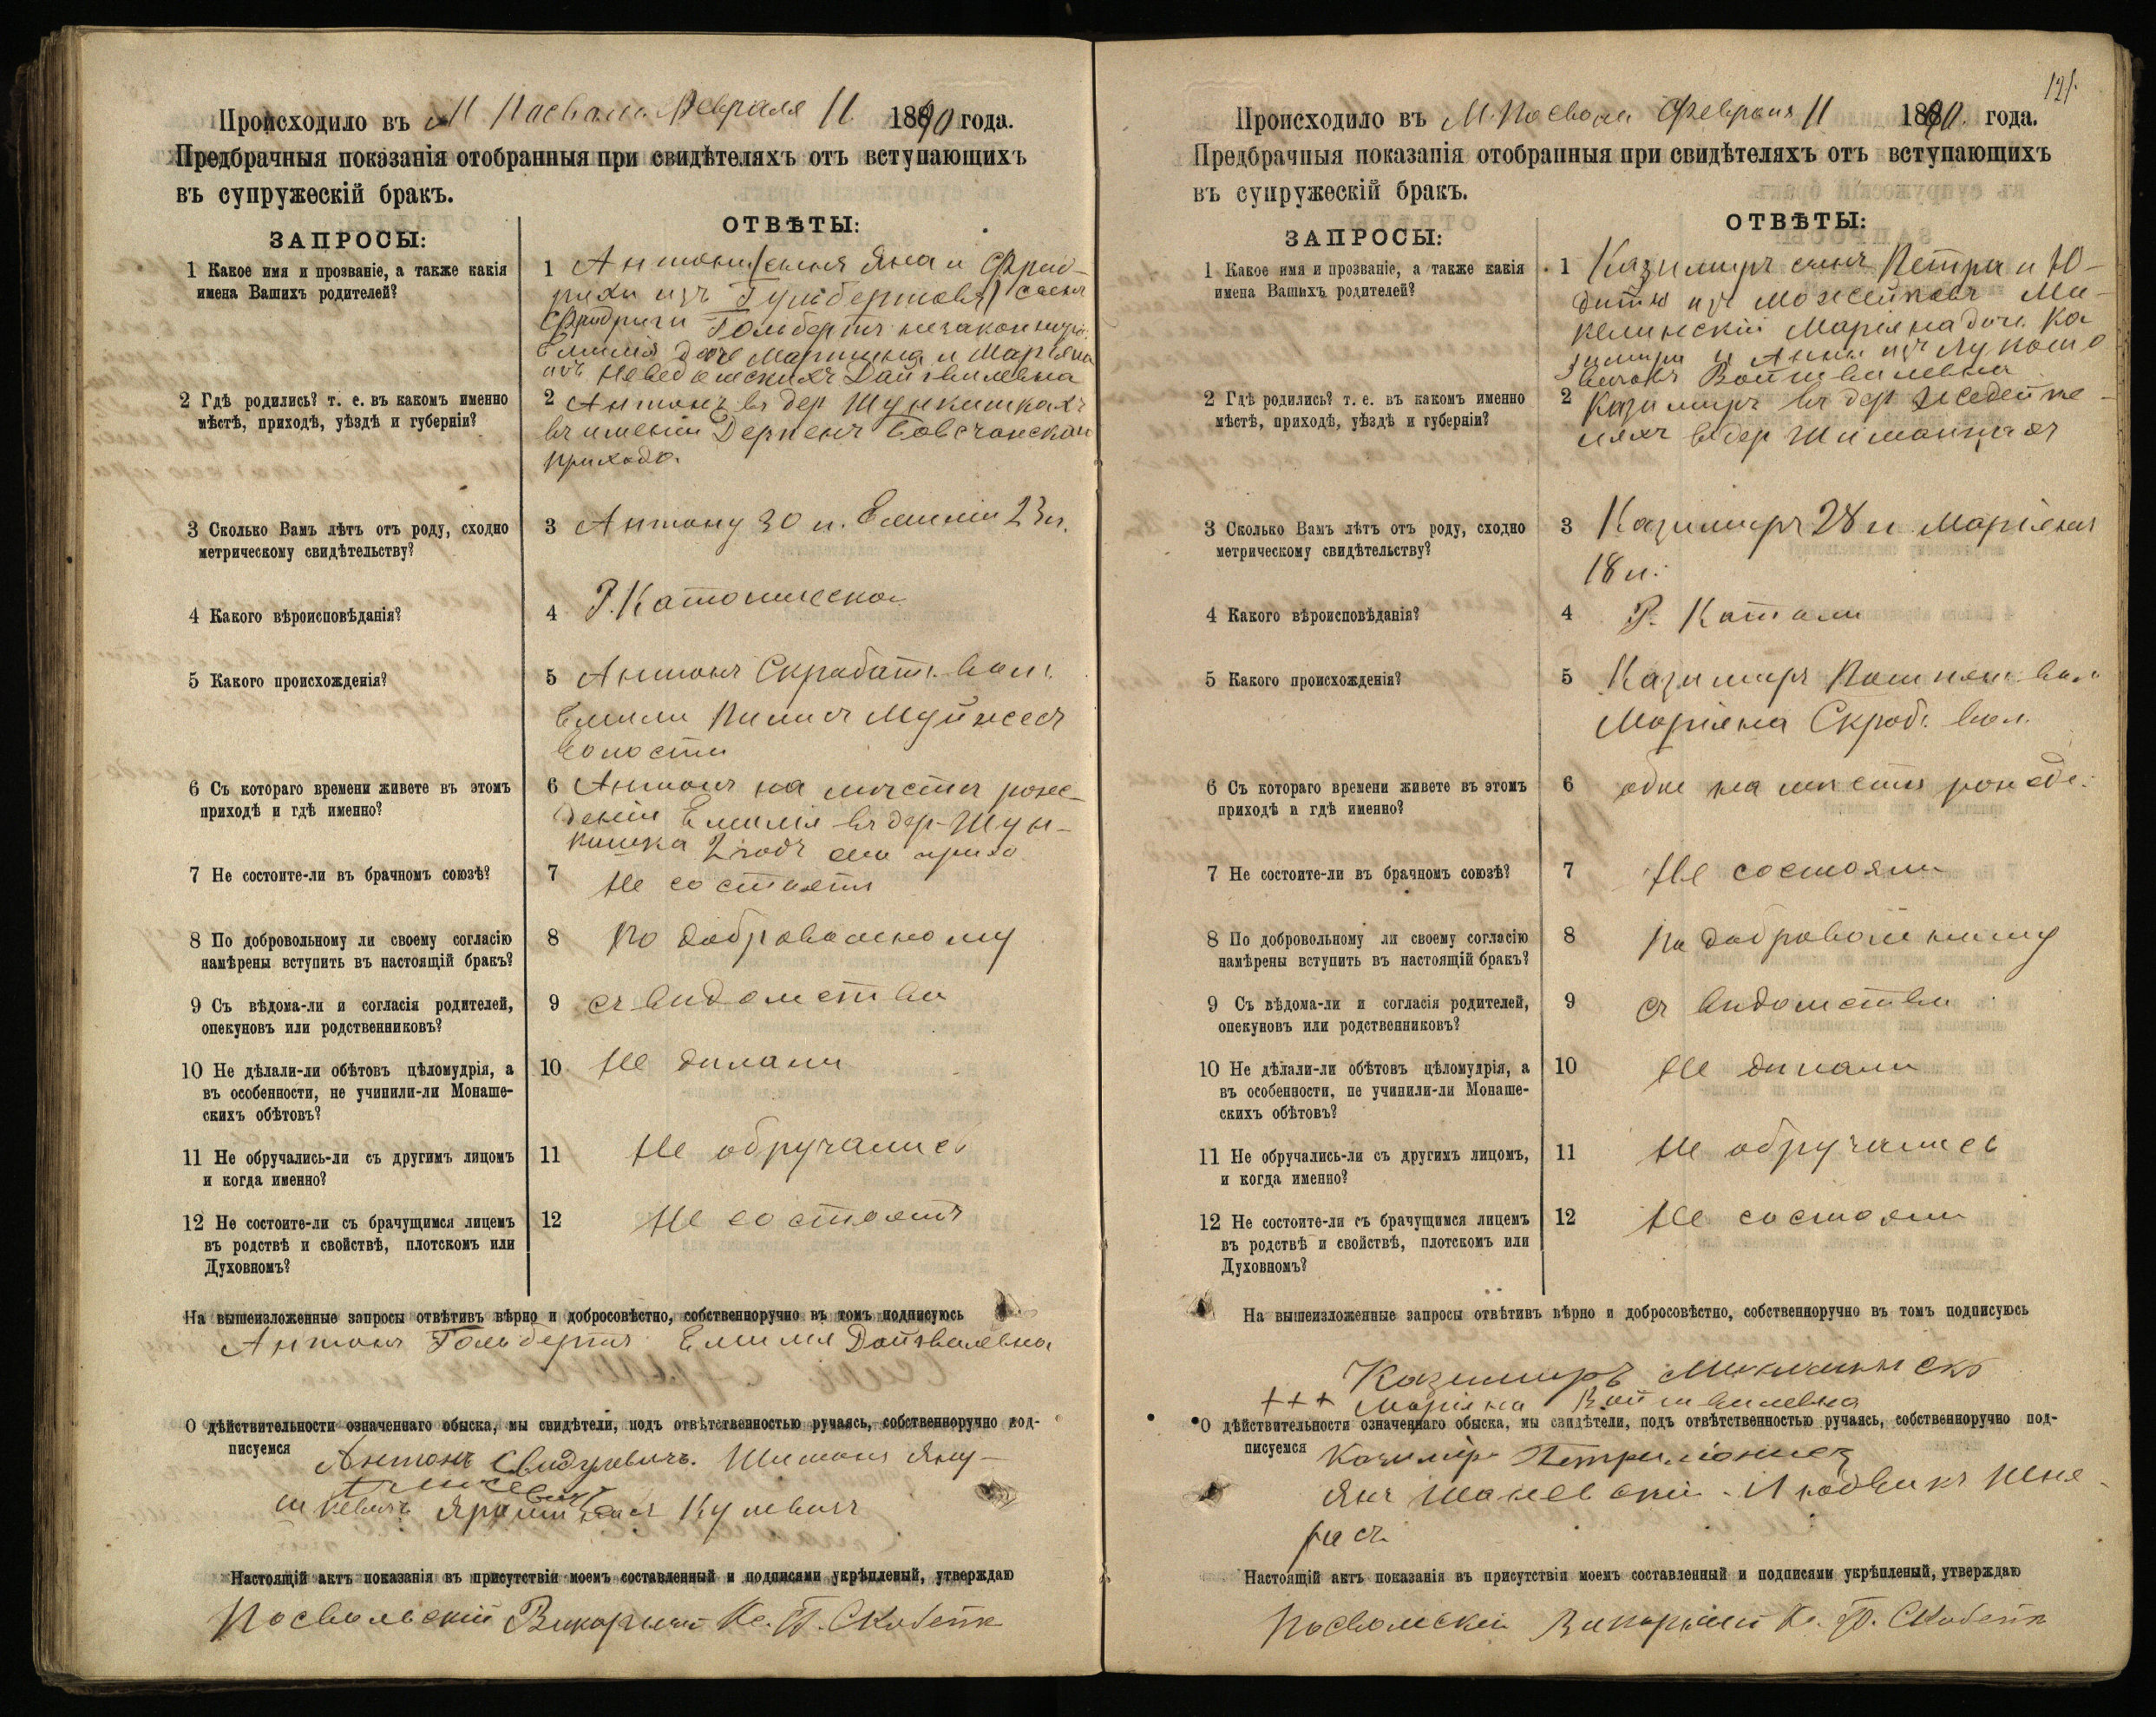 Происходило въ М Посволи Февраля 11 1890 года.
Предбрачныя показанія отобранныя при свидѣтеляхъ отъ вступающихъ
въ супружескій бракъ.
ЗАПРОСЫ:
ОТВѢТЫ:
1 Какое имя и прозваніе, а также какія
имена Вашихъ родителей?
1 Антонъ сынъ Яна и Фрид-
рихи изъ
Фридрихи Гольбертъ незаконнор.
Емилія дочь Мартина и Маріяна
изъ Довгвилевна
2 Гдѣ родились? т. е. въ какомъ именно
мѣстѣ, приходѣ, уѣздѣ и губерніи?
2 Антонъ въ дер Шункишкахъ
въ имѣніи
прихода.
3 Сколько Вамъ лѣтъ отъ роду, сходно
метрическому свидѣтельству?
3 Антону 30 л. Емиліи 23 л.
4 Какого вѣроисповѣданія?
4 Р. Католическо
5 Какого происхожденія?
5 Антонъ Скрабат. вол.
Емили
волости
6 Съ котораго времени живете въ этомъ
приходѣ и гдѣ именно?
6 Антонъ на мисти рож-
деніи Емилія въ дер. Шун-
кишка 2 годъ
7 Не состоите-ли въ брачномъ союзѣ?
7 Не состоятъ
8 По добровольному ли своему согласію
намѣрены вступить въ настоящій бракъ?
8 По добровольному
9 Съ вѣдома-ли и согласія родителей,
опекуновъ или родственниковъ?
9 съ видомства
10 Не дѣлали-ли обѣтовъ цѣломудрія, а
въ особенности, не учинили-ли Монаше-
скихъ обѣтовъ?
10 Не дилали
11 Не обручались-ли съ другимъ лицомъ
и когда именно?
11 Не обручались
12 Не состоите-ли съ брачущимся лицемъ
въ родствѣ и свойствѣ, плотскомъ или
Духовномъ?
12 Не состоятъ
На вышеизложенные запросы отвѣтивъ вѣрно и добросовѣстно, собственноручно въ томъ подписуюсь
Антонъ Гольбертъ Емилія Довгвилевна
О дѣйствительности означеннаго обыска, мы свидѣтели, подъ отвѣтственностью ручаясь, собственноручно под-
писуемся
Антонъ Свидулевичъ. Шимонъ Яну-
шкевичъ Кулевичъ
Настоящій актъ показанія въ присутствіи моемъ составленный и подписями укрѣпленый, утверждаю
Посвольскій Викарный Кс.
121.
Происходило въ М. Посволи Февраля 11 1890. года.
Предбрачныя показанія отобранныя при свидѣтеляхъ отъ вступающихъ
въ супружескій бракъ.
ЗАПРОСЫ:
ОТВѢТЫ:
1 Какое имя и прозваніе, а также какія
имена Вашихъ родителей?
1 Казимиръ сынъ Петра и Ю-
диты изъ Можейковъ Ми-
келинскій Маріяна доч. Ка
зимира и Анны изъ Лукаше
вичовъ Войтвилевна
2 Гдѣ родились? т. е. въ какомъ именно
мѣстѣ, приходѣ, уѣздѣ и губерніи?
2 Казимиръ въ дер
въ дер
3 Сколько Вамъ лѣтъ отъ роду, сходно
метрическому свидѣтельству?
3 Казимиръ 28 л. Маріяна
18 л.
4 Какого вѣроисповѣданія?
4 Р. Католи
5 Какого происхожденія?
5 Казимиръ вол.
Маріяна Скроб. вол.
6 Съ котораго времени живете въ этомъ
приходѣ и гдѣ именно?
6 на мисти рожде.
7 Не состоите-ли въ брачномъ союзѣ?
7 Не состояли
8 По добровольному ли своему согласію
намѣрены вступить въ настоящій бракъ?
8 По добровольному
9 Съ вѣдома-ли и согласія родителей,
опекуновъ или родственниковъ?
9 съ видомства
10 Не дѣлали-ли обѣтовъ цѣломудрія, а
въ особенности, не учинили-ли Монаше-
скихъ обѣтовъ?
10 Не дилали
11 Не обручались-ли съ другимъ лицомъ,
и когда именно?
11 Не обручались
12 Не состоите-ли съ брачущимся лицемъ
въ родствѣ и свойствѣ, плотскомъ или
Духовномъ?
12 Не состояли
На вышеизложенные запросы отвѣтивъ вѣрно и добросовѣстно, собственноручно въ томъ подписуюсь
Казимиръ
+++ Маріяна Войтвилевна
О дѣйствительности означеннаго обыска, мы свидѣтели, подъ отвѣтственностью ручаясь, собственноручно под-
писуемся
Казимир
Янъ Людвикъ
Настоящій актъ показанія въ присутствіи моемъ составленный и подписями укрѣпленый, утверждаю
Посвольскій Викарный Кс.